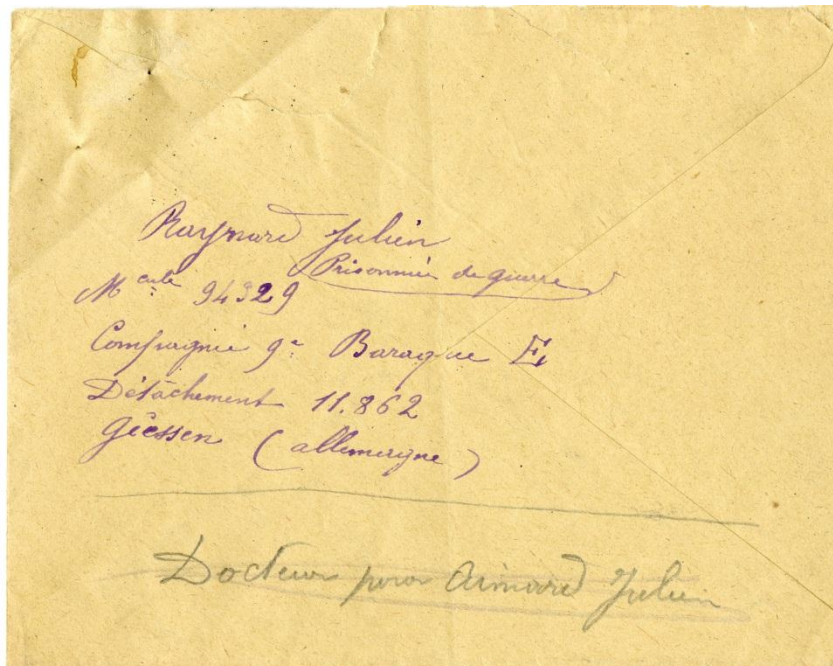 Raynard Julien
Prisonnier de guerre
Mcule 94329
Compagnie 9e Baraque E
Détâchement 11.862
Giessen (allemagne)
Docteur pour Aimard Julien